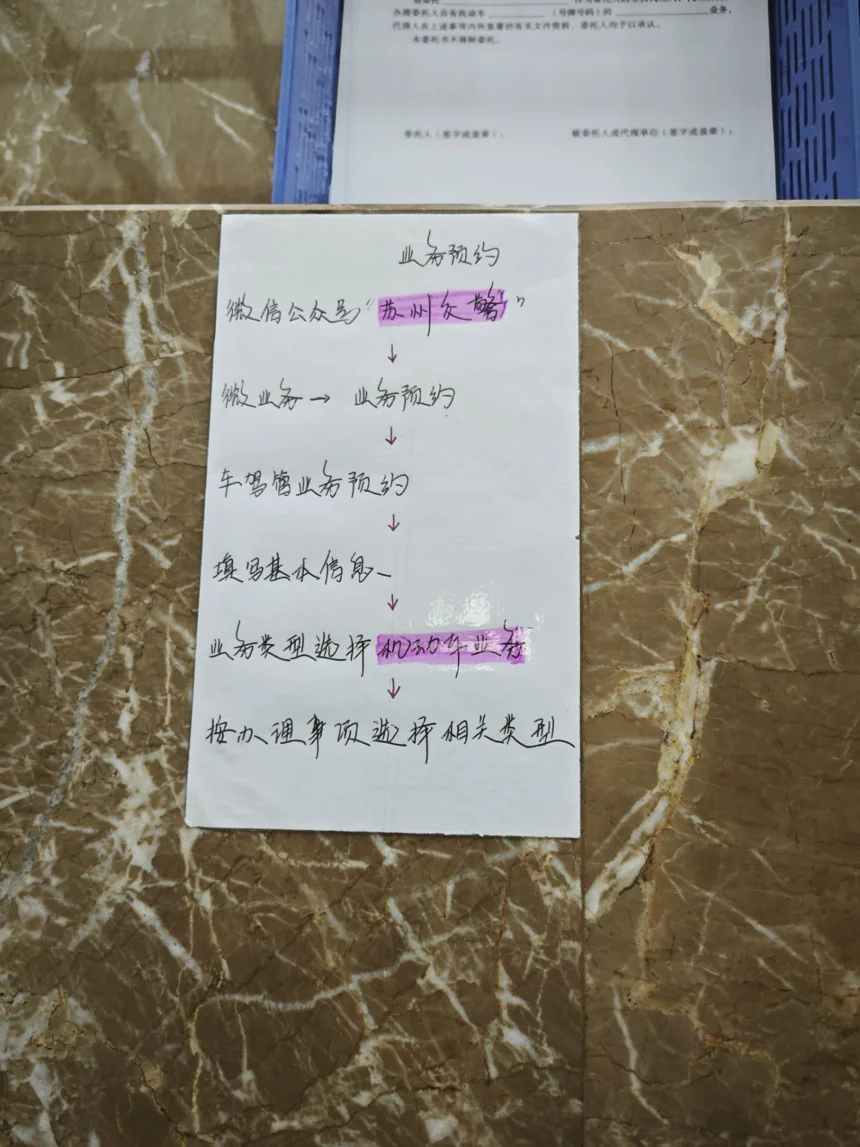 办理委托人自有机动车____________（号牌号码）的____________________业务，
代理人在上述事项内所签署的有关文件资料，委托人均予以承认。
本委托书不得转委托。
委托人（签字或盖章）：
被委托人或代理单位（签字或盖章）：
业务预约
微信公众号“苏州交警”
↓
微业务→ 业务预约
↓
车驾管业务预约
↓
填写基本信息
↓
业务类型选择机动车业务
↓
按办理事项选择相关类型